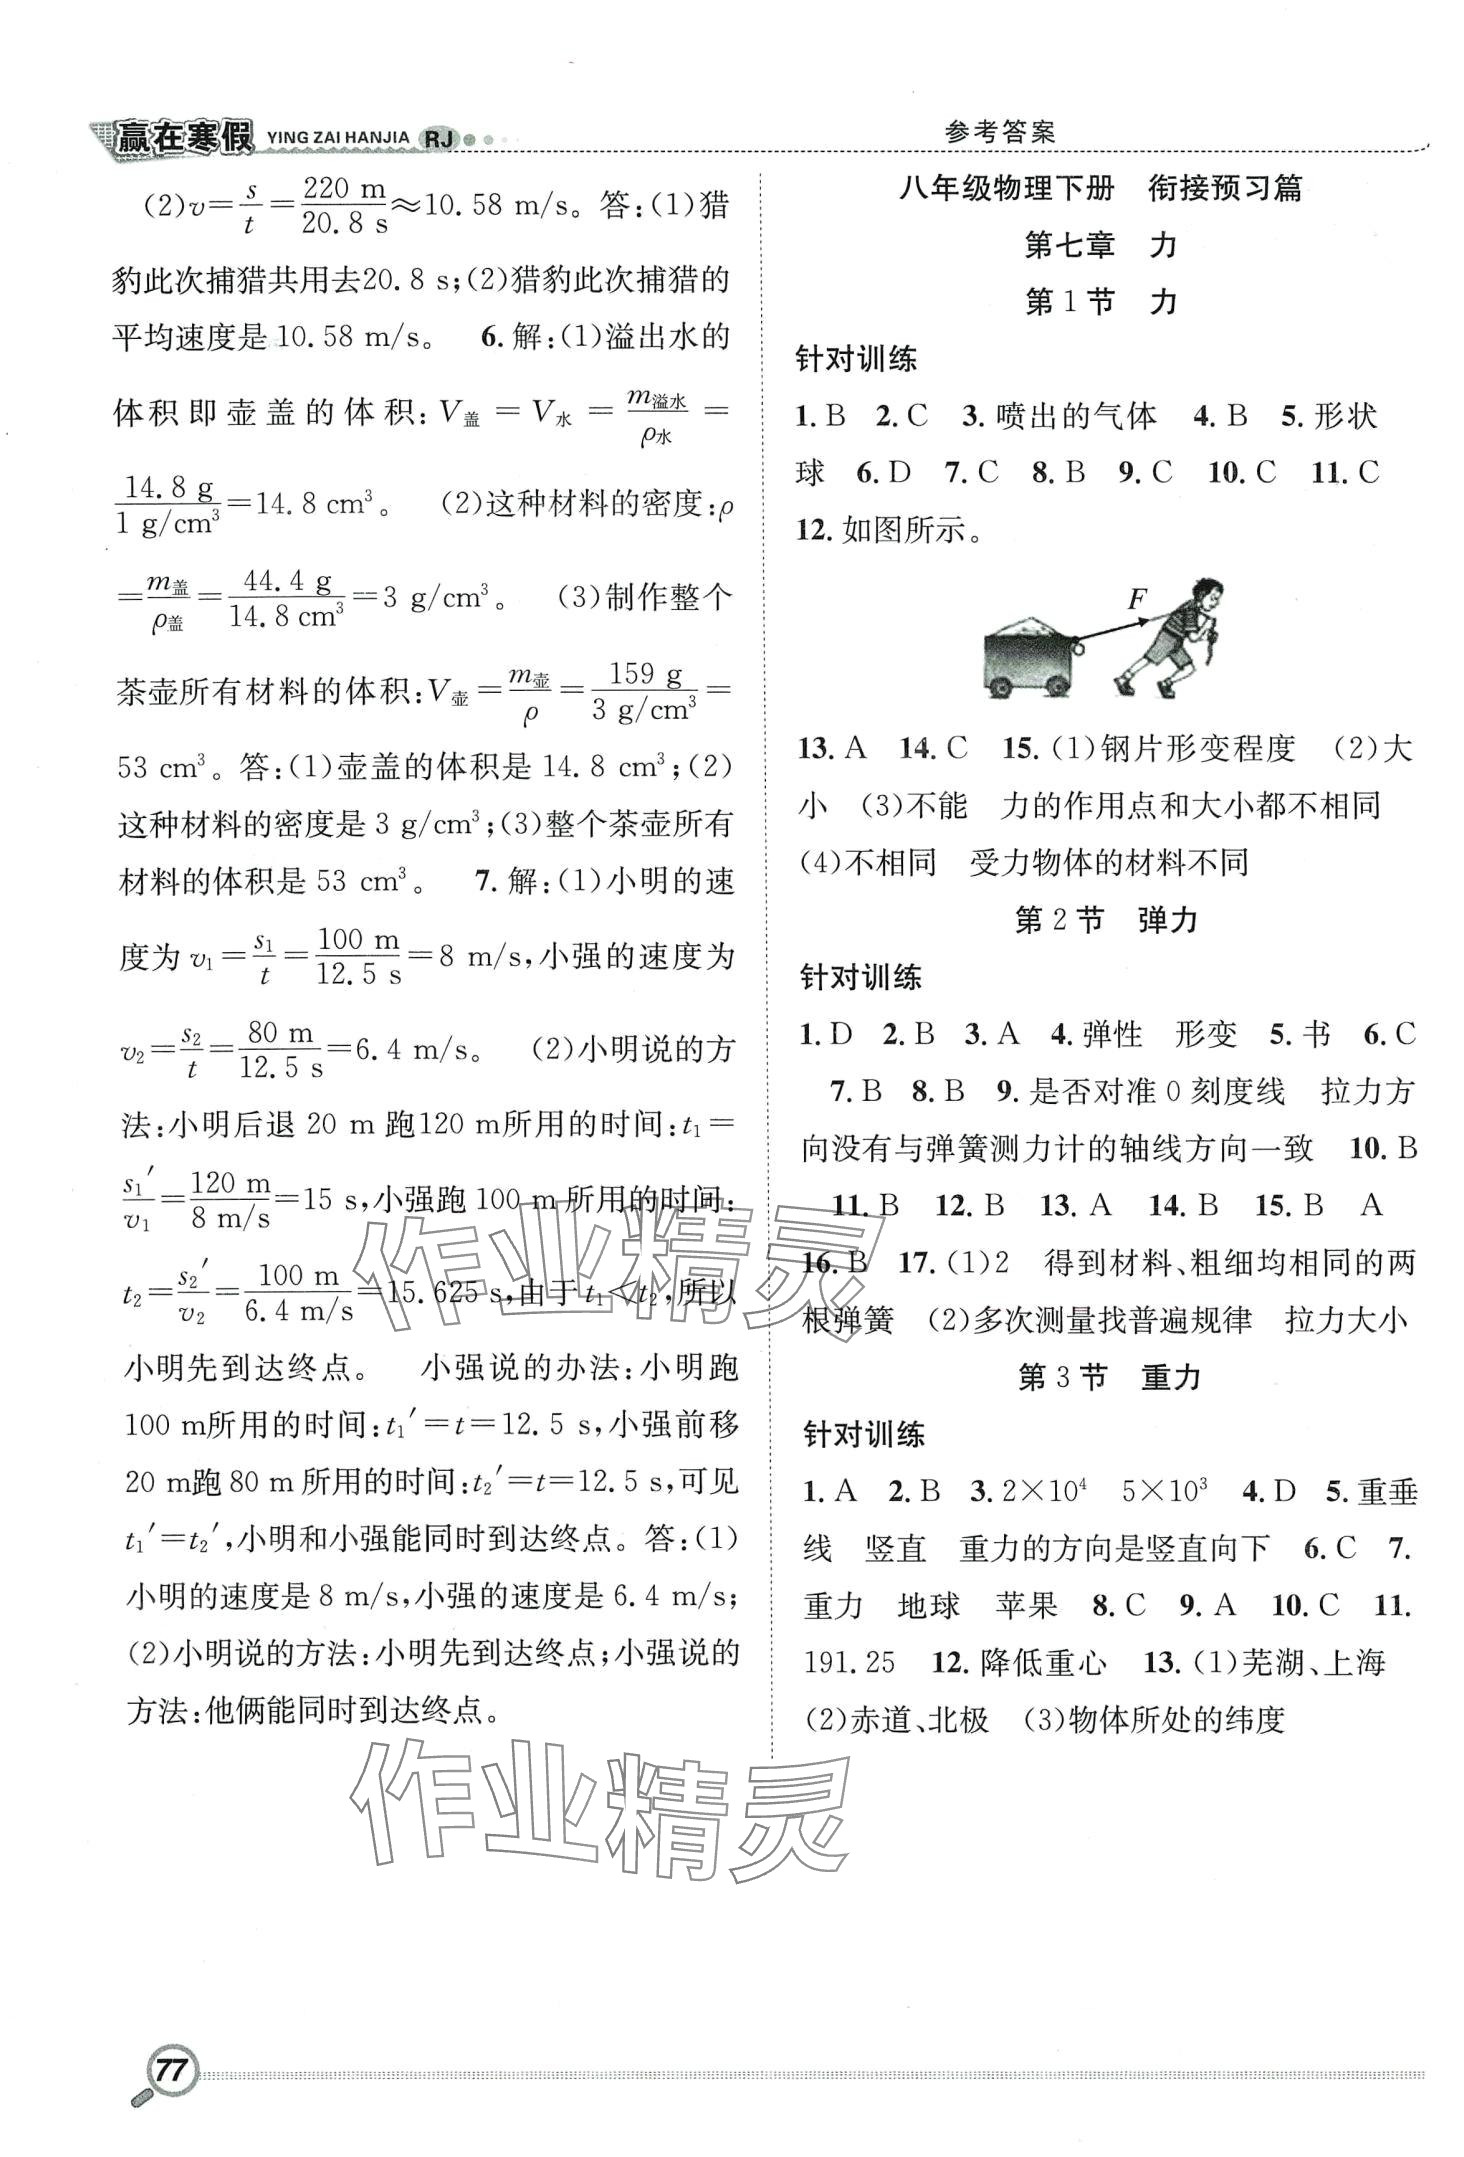 赢在寒假 YING ZAI HANJIA RJ
参考答案
(2)v=s/t=220 m/20.8 s≈10.58 m/s。答:(1)猎
豹此次捕猎共用去20.8 s;(2)猎豹此次捕猎的
平均速度是10.58 m/s。 6.解:(1)溢出水的
体积即壶盖的体积:V盖=V水=m溢水/ρ水=
14.8 g/1 g/cm³=14.8 cm³。 (2)这种材料的密度:ρ
=m盖/ρ盖=44.4 g/14.8 cm³=3 g/cm³。 (3)制作整个
茶壶所有材料的体积:V壶=m壶/ρ=159 g/3 g/cm³=
53 cm³。答:(1)壶盖的体积是14.8 cm³;(2)
这种材料的密度是3 g/cm³;(3)整个茶壶所有
材料的体积是53 cm³。 7.解:(1)小明的速
度为v₁=s₁/t=100 m/12.5 s=8 m/s,小强的速度为
v₂=s₂/t=80 m/12.5 s=6.4 m/s。 (2)小明说的方
法:小明后退20 m跑120 m所用的时间:t₁=
s₁′/v₁=120 m/8 m/s=15 s,小强跑100 m所用的时间:
t₂=s₂′/v₂=100 m/6.4 m/s=15.625 s,由于t₁<t₂,所以
小明先到达终点。 小强说的办法:小明跑
100 m所用的时间:t₁′=t=12.5 s,小强前移
20 m跑80 m所用的时间:t₂′=t=12.5 s,可见
t₁′=t₂′,小明和小强能同时到达终点。答:(1)
小明的速度是8 m/s,小强的速度是6.4 m/s;
(2)小明说的方法:小明先到达终点;小强说的
方法:他俩能同时到达终点。
八年级物理下册 衔接预习篇
第七章 力
第1节 力
针对训练
1.B 2.C 3.喷出的气体 4.B 5.形状
球 6.D 7.C 8.B 9.C 10.C 11.C
12.如图所示。
F
13.A 14.C 15.(1)钢片形变程度 (2)大
小 (3)不能 力的作用点和大小都不相同
(4)不相同 受力物体的材料不同
第2节 弹力
针对训练
1.D 2.B 3.A 4.弹性 形变 5.书 6.C
7.B 8.B 9.是否对准0刻度线 拉力方
向没有与弹簧测力计的轴线方向一致 10.B
11.B 12.B 13.A 14.B 15.B A
16.B 17.(1)2 得到材料、粗细均相同的两
根弹簧 (2)多次测量找普遍规律 拉力大小
第3节 重力
针对训练
1.A 2.B 3.2×10⁴ 5×10³ 4.D 5.重垂
线 竖直 重力的方向是竖直向下 6.C 7.
重力 地球 苹果 8.C 9.A 10.C 11.
191.25 12.降低重心 13.(1)芜湖、上海
(2)赤道、北极 (3)物体所处的纬度
作业精灵
作业精灵
77